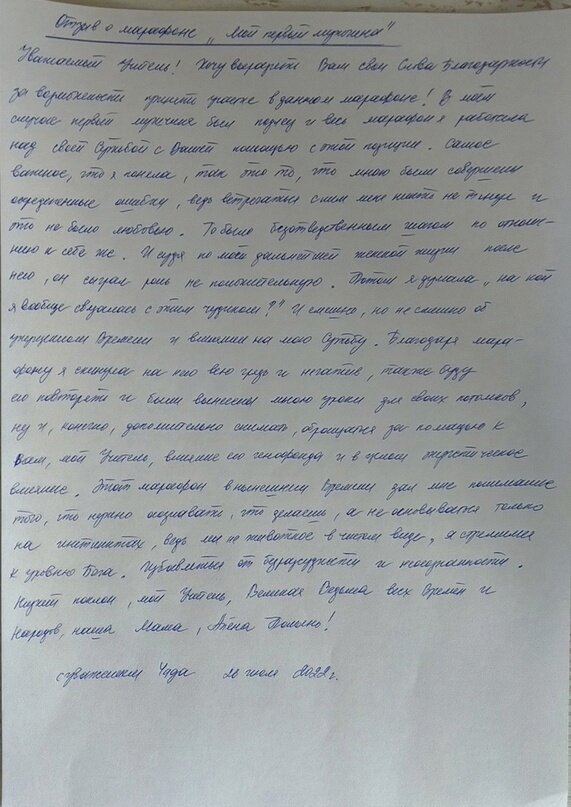 Отзыв о марафоне „Мой первый мужчина"
Уважаемый Учитель! Хочу выразить Вам свои Слова Благодарности
за возможность принять участие в данном марафоне! В моём
случае первый мужчина был подлец и весь марафон я работала
над своей Судьбой с Вашей помощью с этой позиции. Самое
важное, что я поняла, так это то, что мною были совершены
определенные ошибки, ведь встречаться с ним меня никто не тянул и
это не было любовью. То было безответственным шагом по отноше-
нию к себе же. И судя по моей дальнейшей женской жизни после
него, он сыграл роль не положительную. Потом я думала „на кой
я вообще связалась с этим чудиком?" И смешно, но не смешно об
упущенном Времени и влиянии на мою Судьбу. Благодаря мара-
фону я скинула на него всю грязь и негатив, также буду
это повторять и были вынесены мною уроки для своих потомков,
ну и, конечно, дополнительно снимать, обращаясь за помощью к
Вам, мой Учитель, влияние его генофонда и в целом энергетическое
влияние. Этот марафон в нынешнем Времени дал мне понимание
того, что нужно осознавать, что делаешь, а не основываться только
на инстинктах, ведь мы не животное в чистом виде, а стремимся
к уровню Бога. Избавляться от безрассудности и неосознанности.
Низкий поклон, мой Учитель, Великая Ведьма всех Времён и
Народов, наша Мама, Алёна Полынь!
с уважением Чада 26 июля 2022 г.